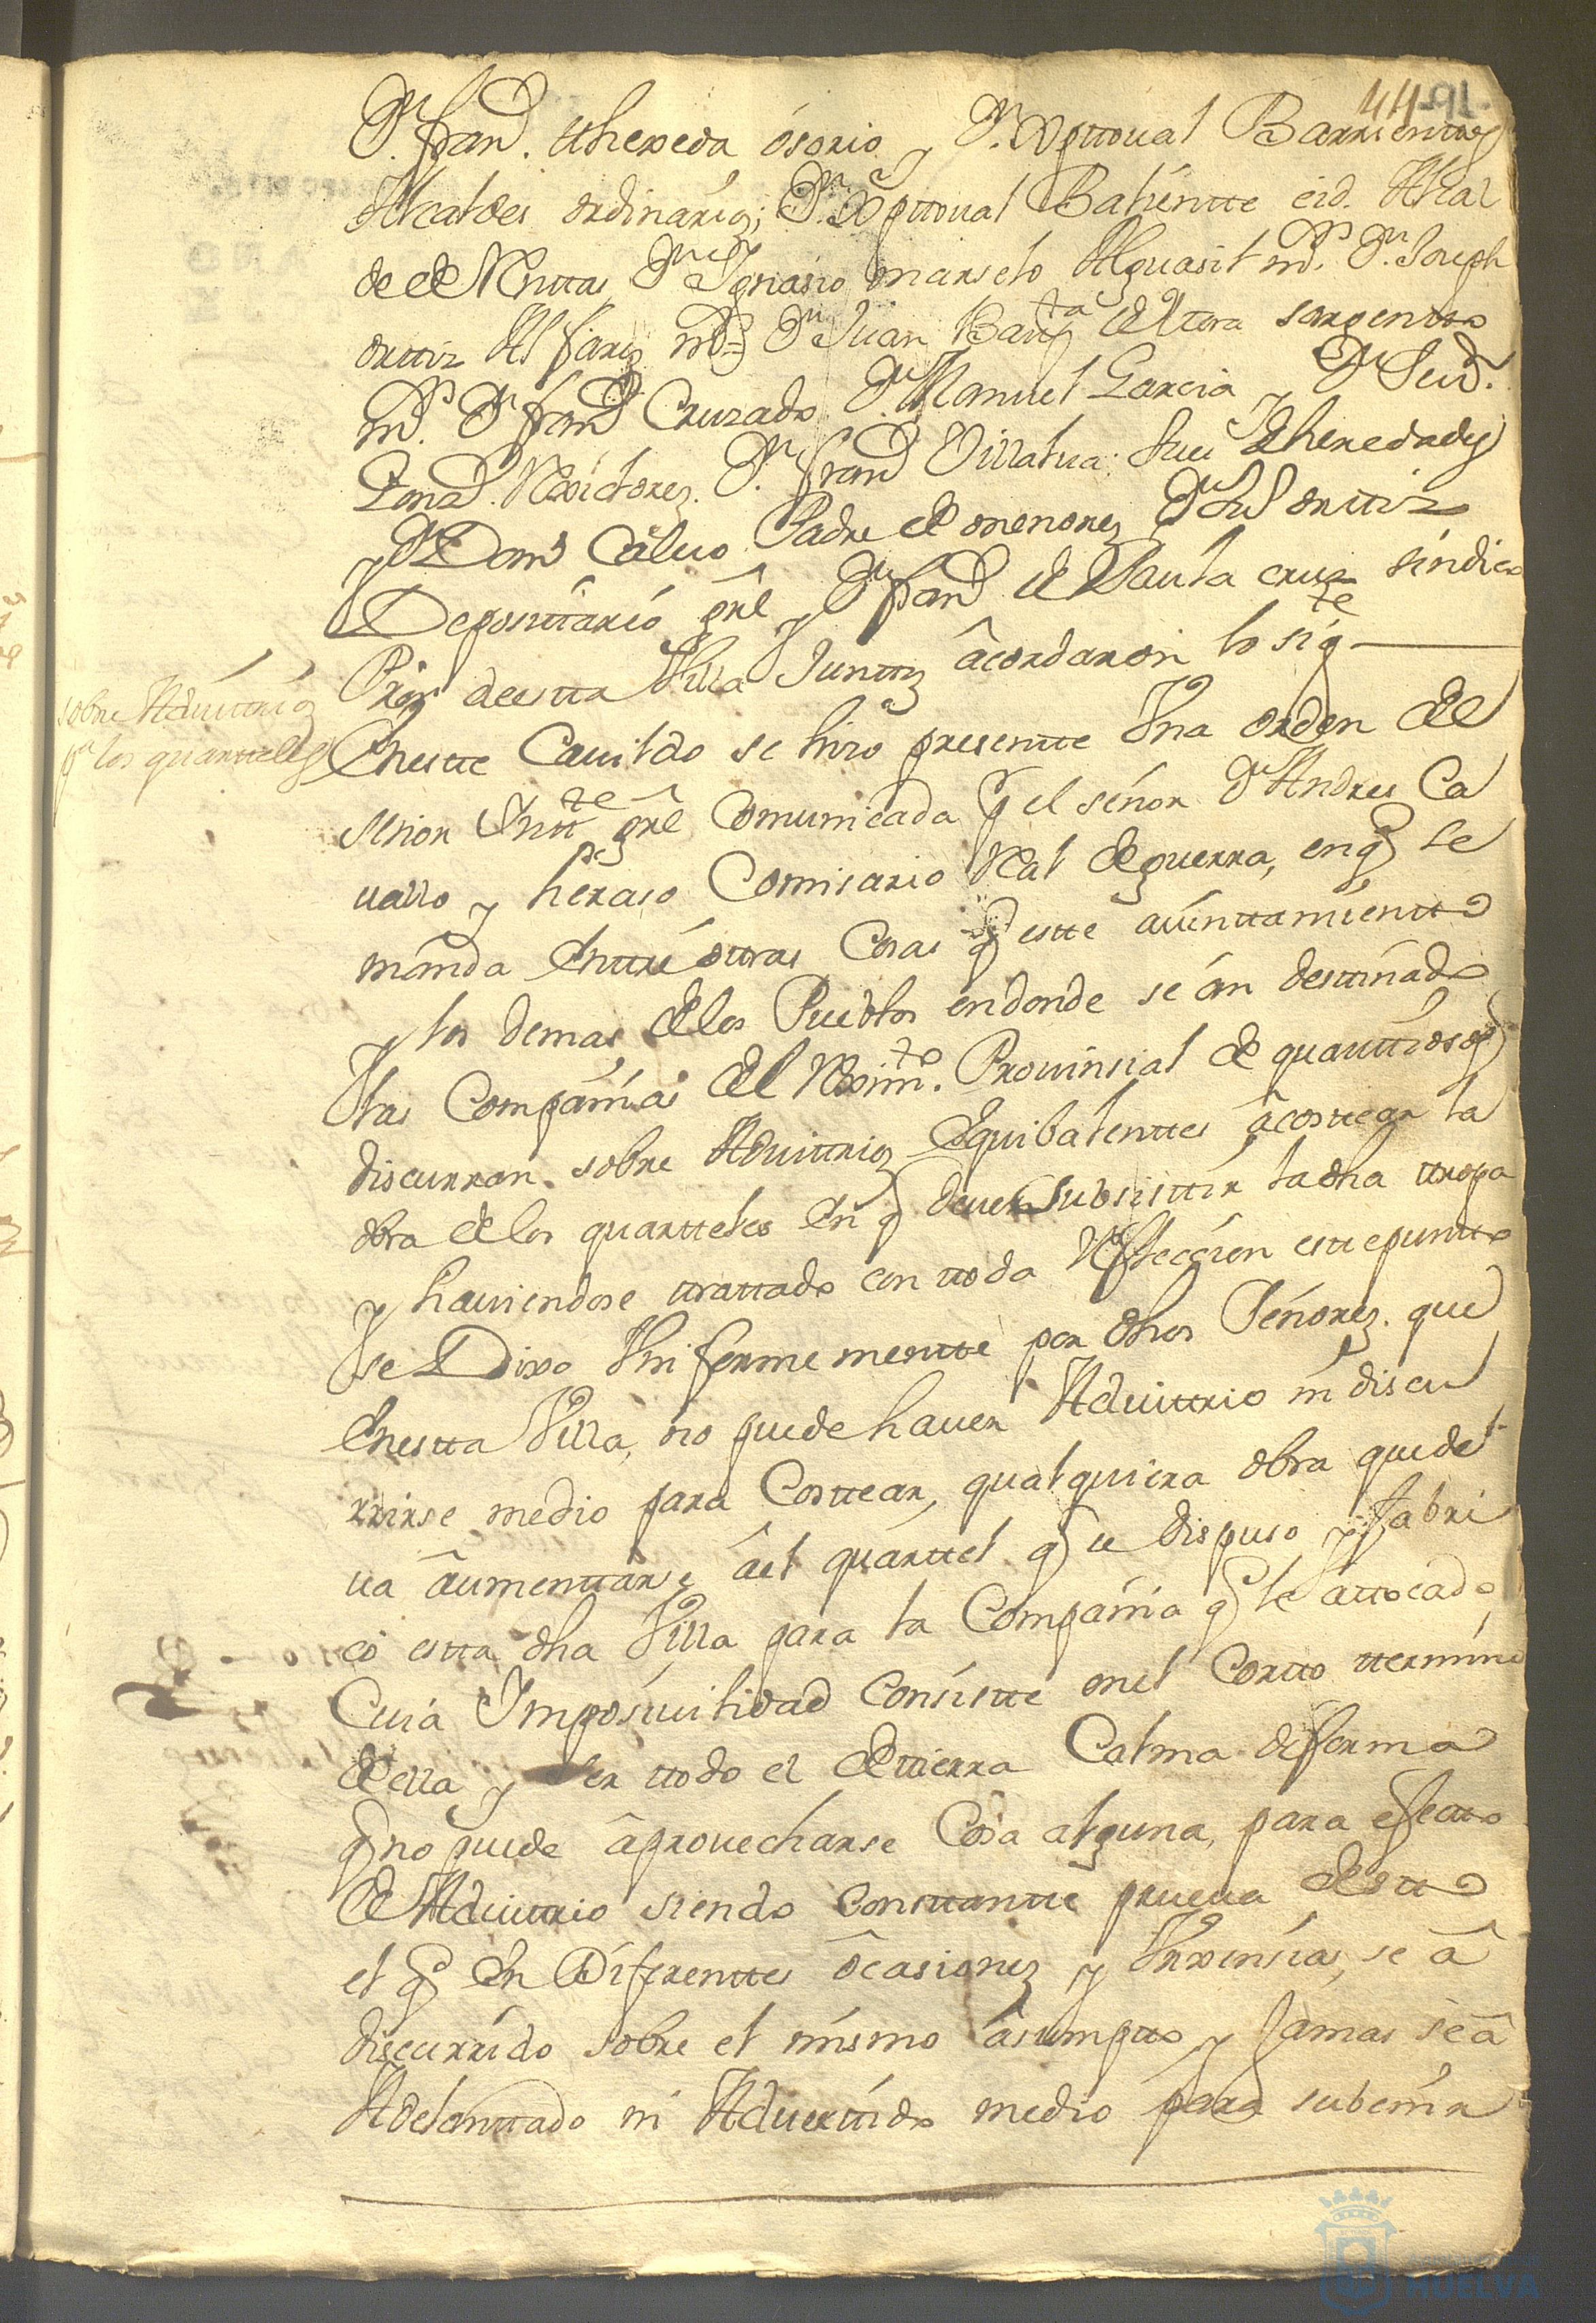 44 91
Dn. Frand. thexeda ósorio y Dn. Xpttoual Barrienttos
Alcaldes ordinarios; Dn. Xpttoual Balientte eid. Alcal
de de Renttas Dn. Ygnasio marselo Alguasil mr. Dn. Joseph
orttiz Alfares mr. Dn. Juan Bautta de Vera sargentto
mr. Dn. frand Cruzado Dn. Manuel Garcia y Dn.
Gonz. Rexidores. Dn. frand Villalua Jues de heredades
y Dn. Domo Caluo Padre de menores Dn. orttiz
Deposittario grâl y Dn. frand de Santa cruz sindico
Pror deestta Villa Junttos âcordaron lo sigte
sobre Aduittrios
pa los quartteles
Enestte Cauildo se hizo presentte Vna orden del
senor Intte grâl Comunicada pr el señor Dn Andres Ca
uallo y heraso Comisario Real de guerra, en q se
manda Enttre ottras Cosas q estte aiunttamientto
y los demas de los Pueblos endonde se án desttinado
las Compañias del Reximto. Prouinsial de quanttiosos
discurran sobre Aduittrios Equibalenttes âcosttear la
obra de los quartteles en q deuen subsisttir ladha ttropa
y hauiendose ttrattado con ttoda Reflección estte puntto
se Dixo Vniformementte por dhos Señores que
Enestta Villa, no puede hauer Aduittrio ni discu
rrirse medio para Costtear, qualquiera obra quede
ua âumenttarse áel quarttel q se dispuso y fabri
có estta dha Villa para la Compañia q le âttocado
Cuia Imposiuilidad Consistte enel Cortto ttermino
de ella y ser ttodo el de ttierra Calma deforma
q no puede âprouecharse Cosa alguna, para efectto
de Aduittrio siendo Consttantte prueua de estto
el q en Diferenttes ôcasiones y Vrxensias, se â
discurrido sobre el mismo âsumptto y Jamas se â
Adelanttado ni Aduerttido medio para subenir
HUELVA